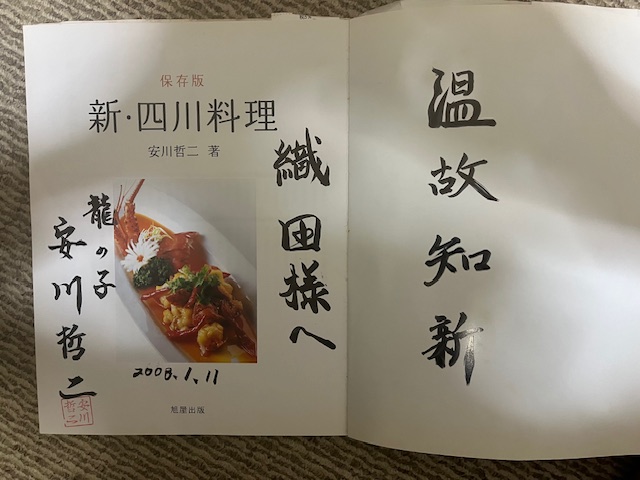 保存版
新・四川料理
安川哲二 著
織田様へ
龍の子
安川哲二
安川
哲二
2008.1.11
旭屋出版
温故知新